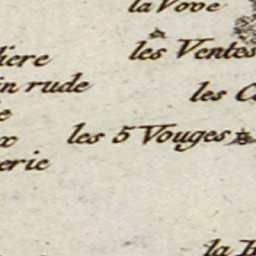 la Vove
les Ventes
liere
in rude
les C
e
les 5 Vouges
x
erie
la B